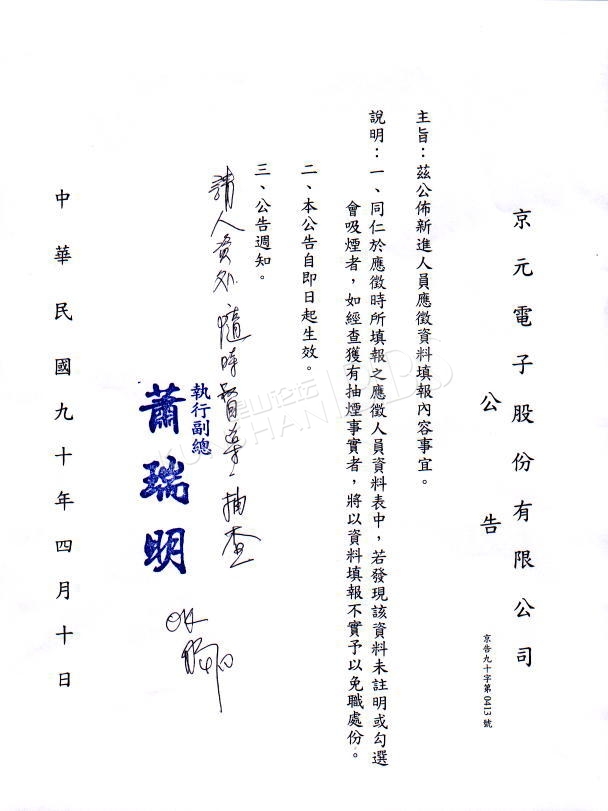 京元電子股份有限公司
公告
京告九十字第0413號
主旨：茲公佈新進人員應徵資料填報內容事宜。
說明：一、同仁於應徵時所填報之應徵人員資料表中，若發現該資料未註明或勾選
會吸煙者，如經查獲有抽煙事實者，將以資料填報不實予以免職處份。
二、本公告自即日起生效。
三、公告週知。
請人資處隨時督導、抽查
執行副總
蕭瑞明
中華民國九十年四月十日
昆山论坛
KUNSHAN BBS